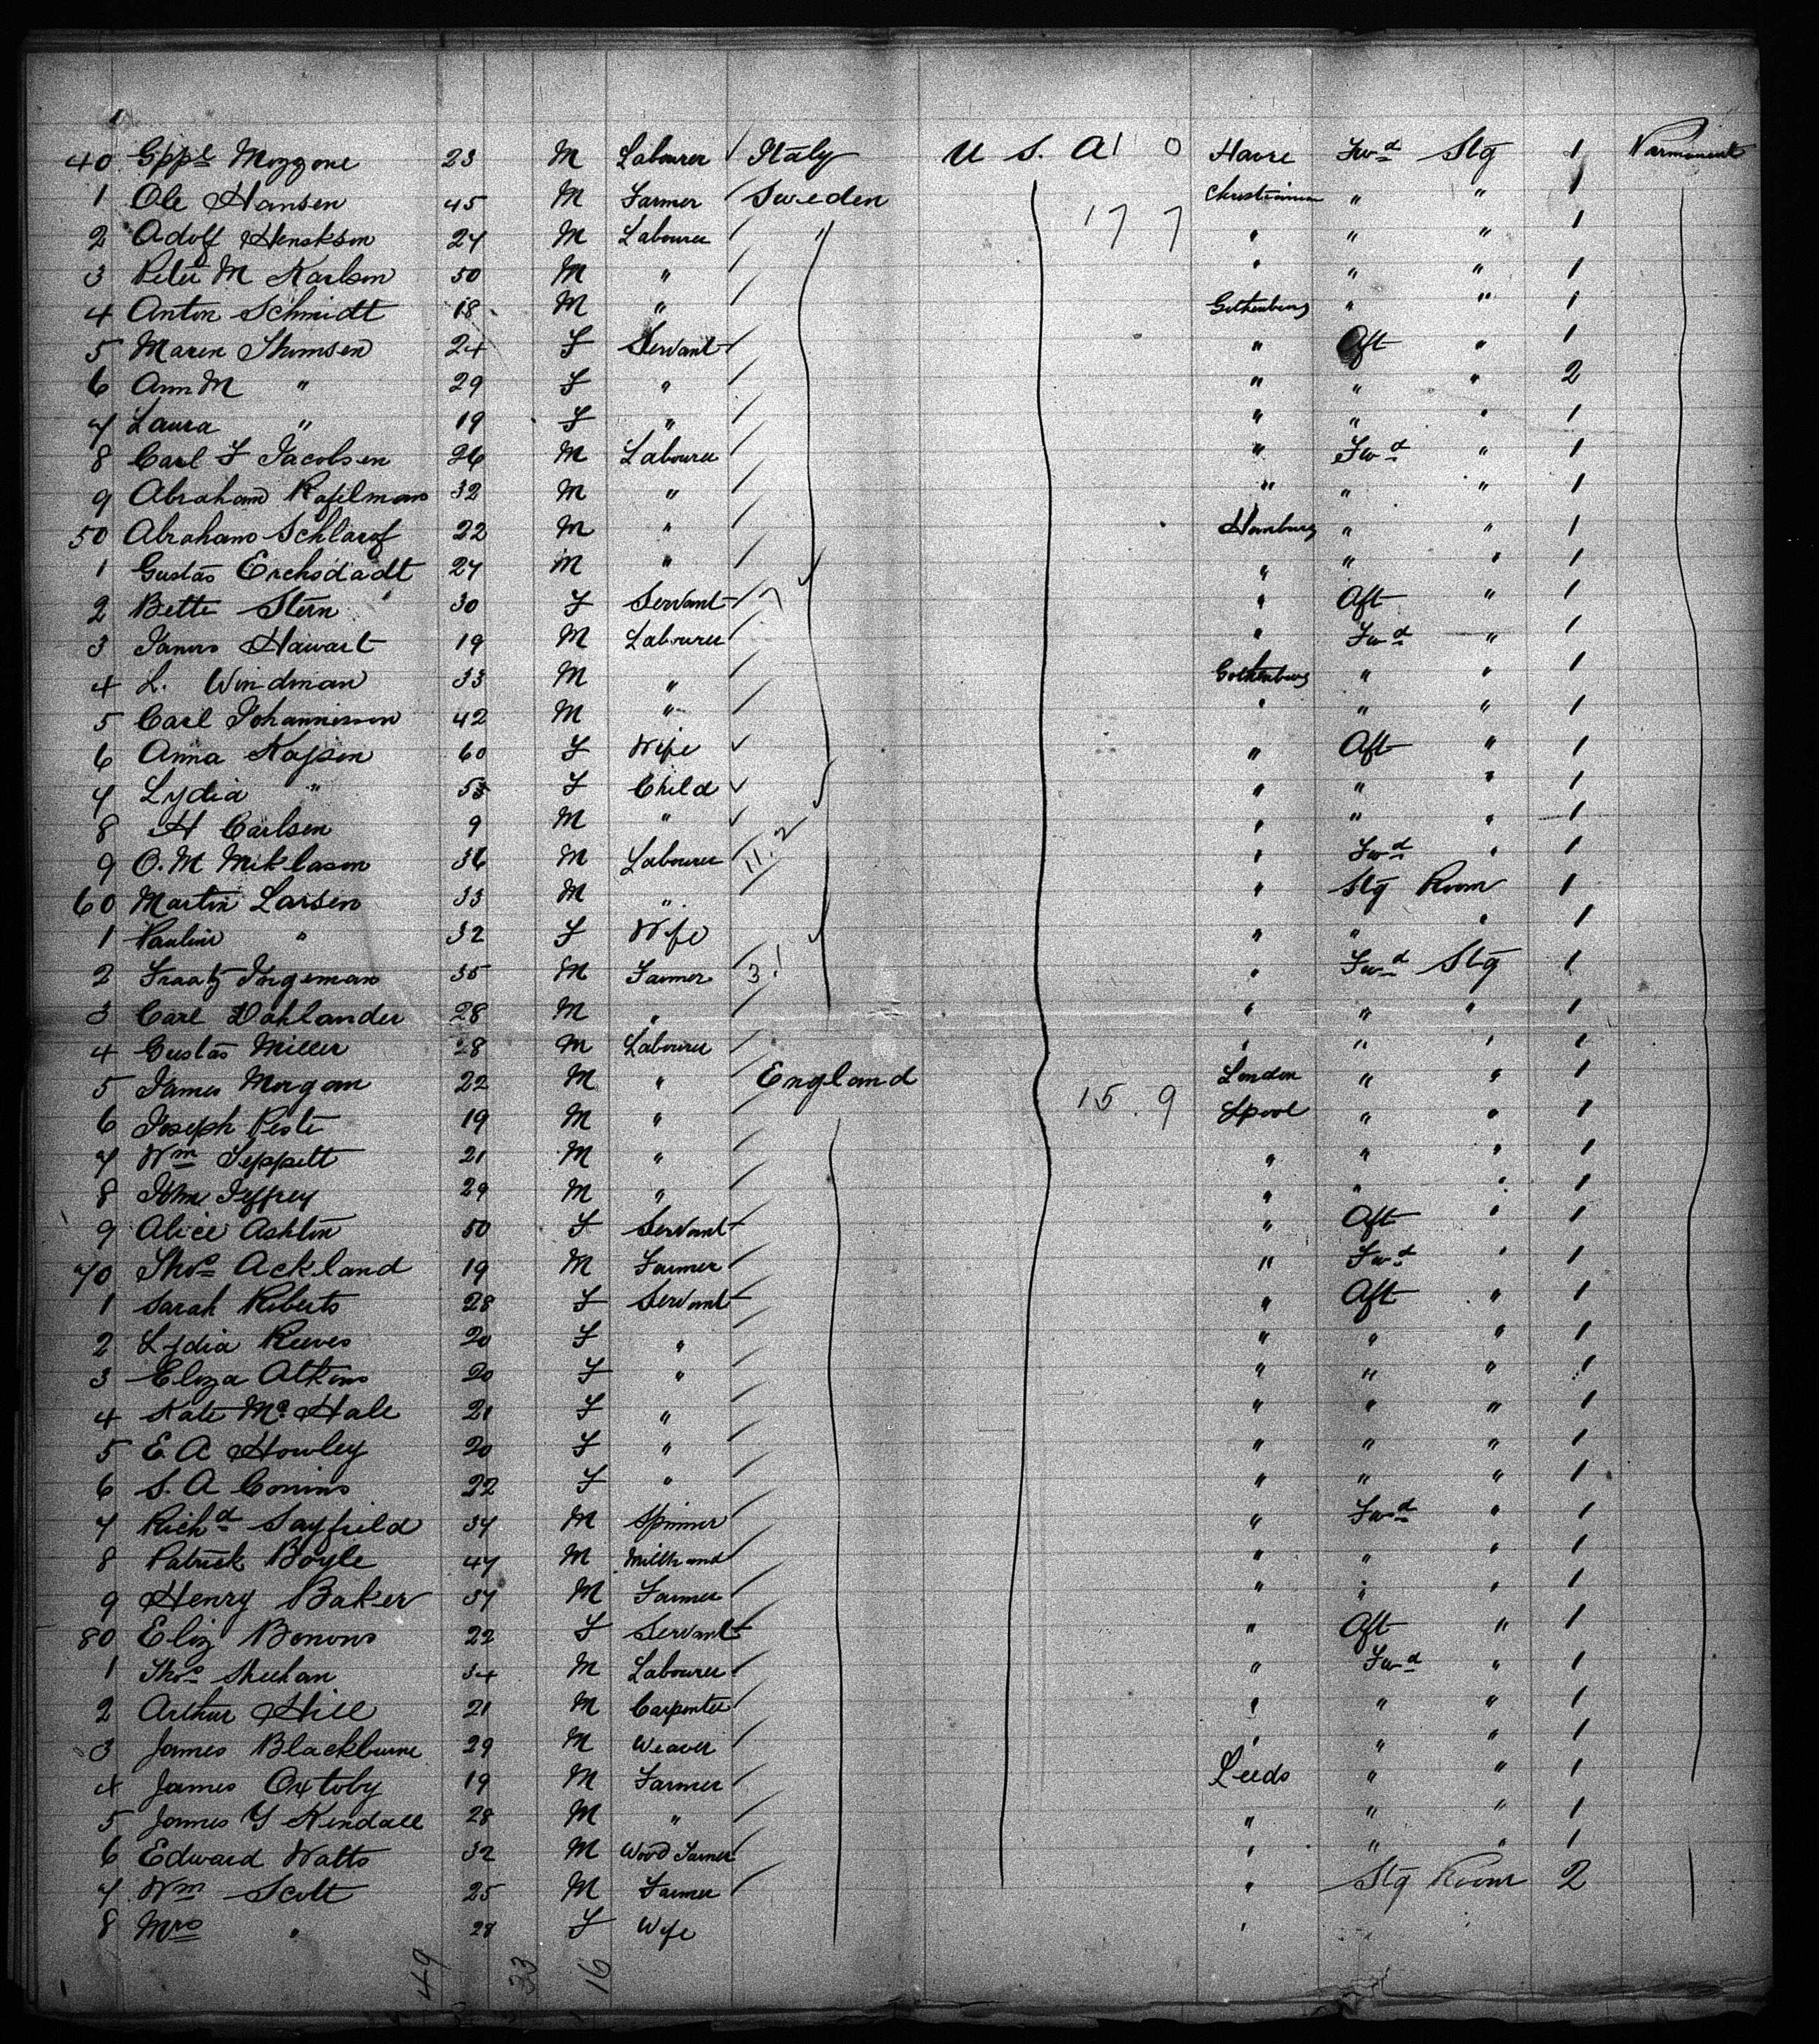 40 Gppe Mozzone 23 M Labourer Italy U S. A 1 0 Havre Fwd Stg 1 Permanent
1 Ole Hansen 45 M Farmer Sweden Christiania " " 1
2 Adolf Henskson 24 M Labourer " 17 7 " " " 1
3 Peter M Karlson 50 M " " " " 1
4 Anton Schmidt 18 M " Gothenburg " " 1
5 Maren Thomsen 24 F Servant " Aft " 1
6 Ann M " 29 F " " " " 2
7 Laura " 19 F " " " " 1
8 Carl F Jacobsen 26 M Labourer " Fwd " 1
9 Abraham 32 M " " " " 1
50 Abraham Schlarof 22 M " Hamburg " " 1
1 Gustav 27 M " " " " 1
2 Bette Stern 30 F Servant " Aft " 1
3 Hawart 19 M Labourer " Fwd " 1
4 L. Windman 33 M " Gothenburg " " 1
5 Carl Johannisson 42 M " " " " 1
6 Anna Kapson 60 F Wife " Aft " 1
7 Lydia " F Child " " " 1
8 H Carlsen 9 M " " " " 1
9 O. M Miklason 36 M Labourer 11.2 " Fwd " 1
60 Martin Larsen 33 M " " Stg Room 1
1 Pauline " 32 F Wife " " " 1
2 35 M Farmer 3.1 " Fwd Stg 1
3 Carl Dahlander 28 M " " " " 1
4 Gustav Miller 28 M Labourer " " " 1
5 James Morgan 22 M " England London " " 1
6 Joseph Peste 19 M " 15. 9 Lpool " " 1
7 Wm Seppelt 21 M " " " " 1
8 John Jeffrey 29 M " " " " 1
9 Alice Ashton 50 F Servant " Aft " 1
70 Thos Ackland 19 M Farmer " Fwd " 1
1 Sarah Roberts 28 F Servant " Aft " 1
2 Lydia Reeves 20 F " " " " 1
3 Eliza Atkins 20 F " " " " 1
4 Kate Mc Hale 21 F " " " " 1
5 E A Howley 20 F " " " " 1
6 S. A Conins 22 F " " " " 1
7 Richd Sayfield 37 M Spinner " Fwd " 1
8 Patrick Boyle 47 M Millhand " " " 1
9 Henry Baker 37 M Farmer " " " 1
80 Eliz Benons 22 F Servant " Aft " 1
1 Thos Sheehan 34 M Labourer " Fwd " 1
2 Arthur Hill 21 M Carpenter " " " 1
3 James Blackburne 29 M Weaver " " " 1
4 James Oxtoby 19 M Farmer Leeds " " 1
5 James Y Kendall 28 M " " " " 1
6 Edward Watts 32 M Wood Turner " " " 1
7 Wm Scott 25 M Farmer " Stg Room 2
8 Mrs " 28 F Wife "
49 33 16